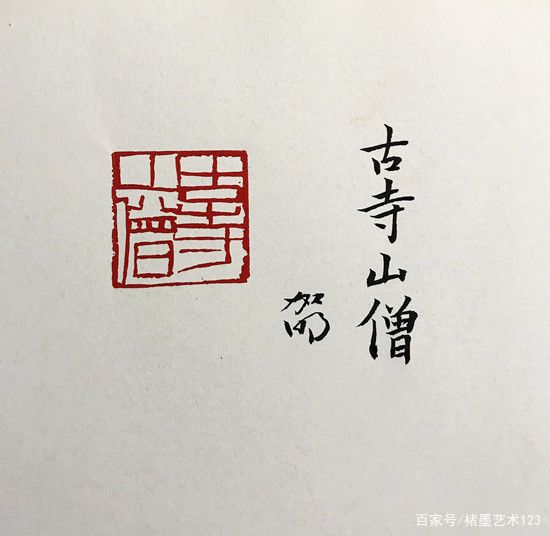 古寺山僧
古寺山僧
百家号/楮墨艺术123